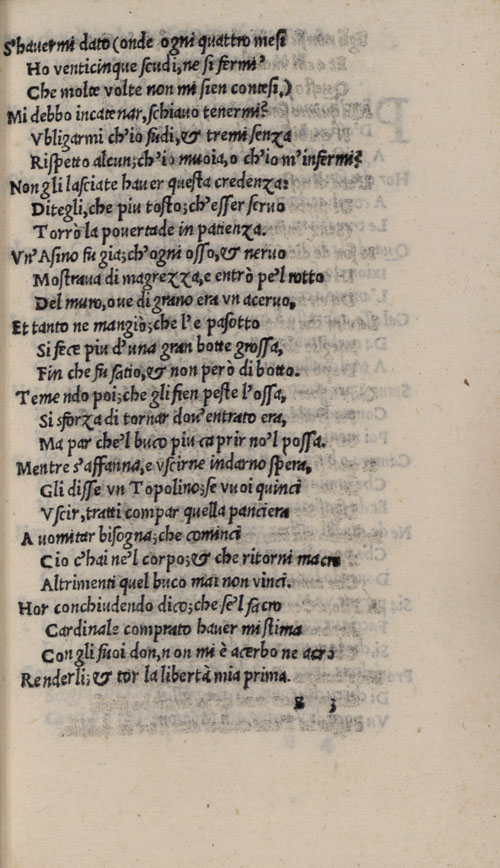 S'havermi dato (onde ogni quattro mesi
Ho venticinque scudi, ne si fermi
Che molte volte non mi sien contesi,)
Mi debbo incatenar, schiavo tenermi?
Vbligarmi ch'io sudi, & tremi senza
Rispetto alcun; ch'io muoia, o ch'io m'infermi?
Non gli lasciate haver questa credenza:
Ditegli, che piu tosto; ch'esser servo
Torrò la povertade in patienza.
Vn' Asino fu gia; ch'ogni osso, & nervo
Mostrava di magrezza, e entrò pe'l rotto
Del muro, ove di grano era vn acervo,
Et tanto ne mangiò; che l'e pasotto
Si fece piu d'una gran botte grossa,
Fin che fu satio, & non però di botto.
Temendo poi; che gli sien peste l'ossa,
Si sforza di tornar dov'entrato era,
Ma par che'l buco piu caprir no'l possa.
Mentre s'affanna, e vscirne indarno spera,
Gli disse vn Topolino; se vuoi quinci
Vscir, tratti compar quella panciera
A vomitar bisogna; che cominci
Cio c'hai ne'l corpo; & che ritorni macro
Altrimenti quel buco mai non vinci.
Hor conchiudendo dico; che se'l sacro
Cardinale comprato haver mi stima
Con gli suoi don, non mi è acerbo ne acro
Renderli; & tor la libertà mia prima.
3